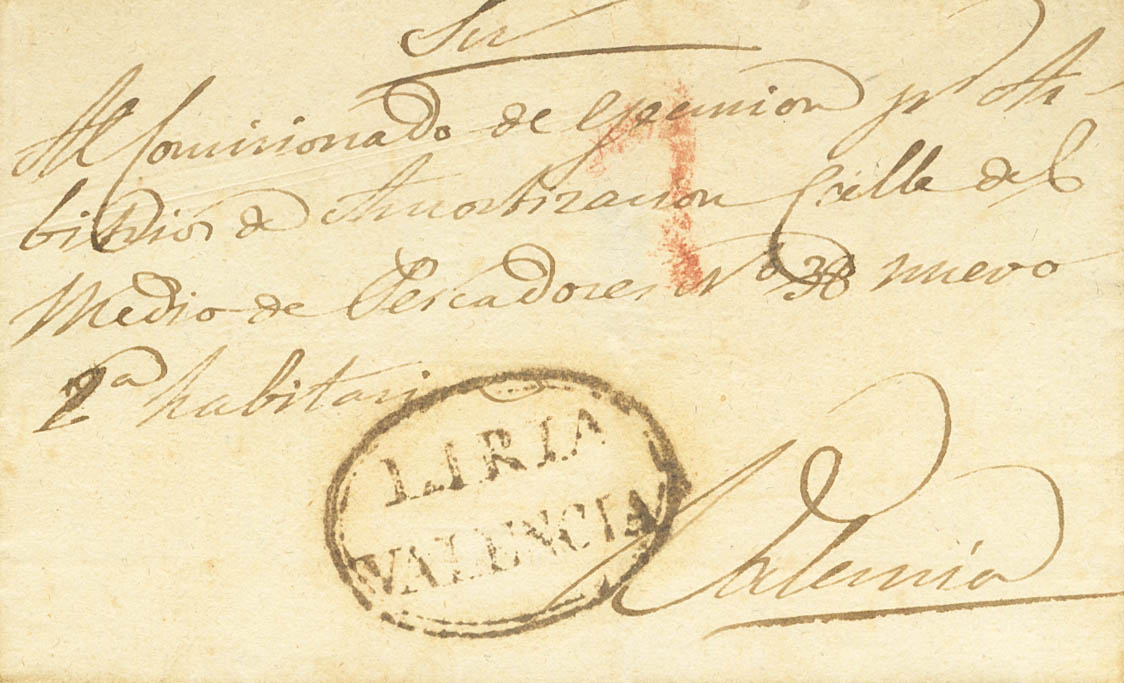 Al Comisionado de Ejecucion pr Ar-
bitrios de Amortizacion Calle del
Medio de Pescadores No 38 nuevo
2a habitaci
LIRIA
VALENCIA
Valencia